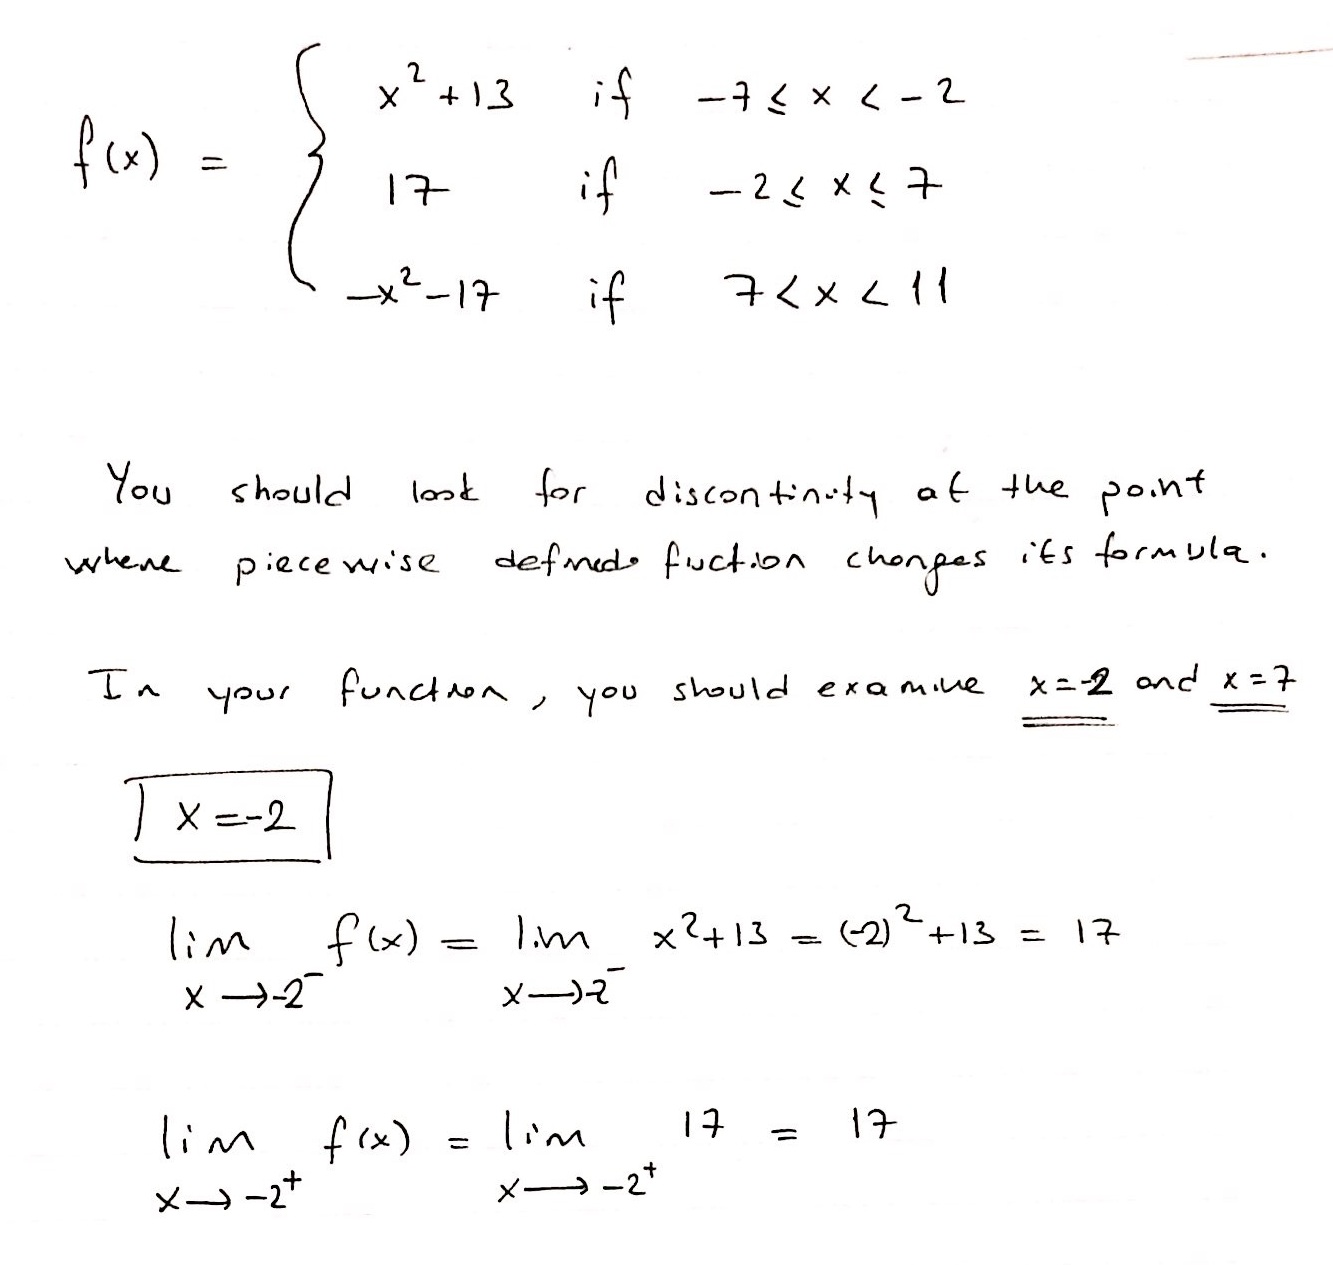 f(x) = { x² + 13 if -7 ≤ x < -2
17 if -2 ≤ x ≤ 7
-x² - 17 if 7 < x < 11
You should look for discontinuty at the point
where piecewise defined fuction changes its formula.
In your function, you should examine x=-2 and x=7
x = -2
lim f(x) = lim x²+13 = (-2)² + 13 = 17
x → -2⁻ x → -2⁻
lim f(x) = lim 17 = 17
x → -2⁺ x → -2⁺